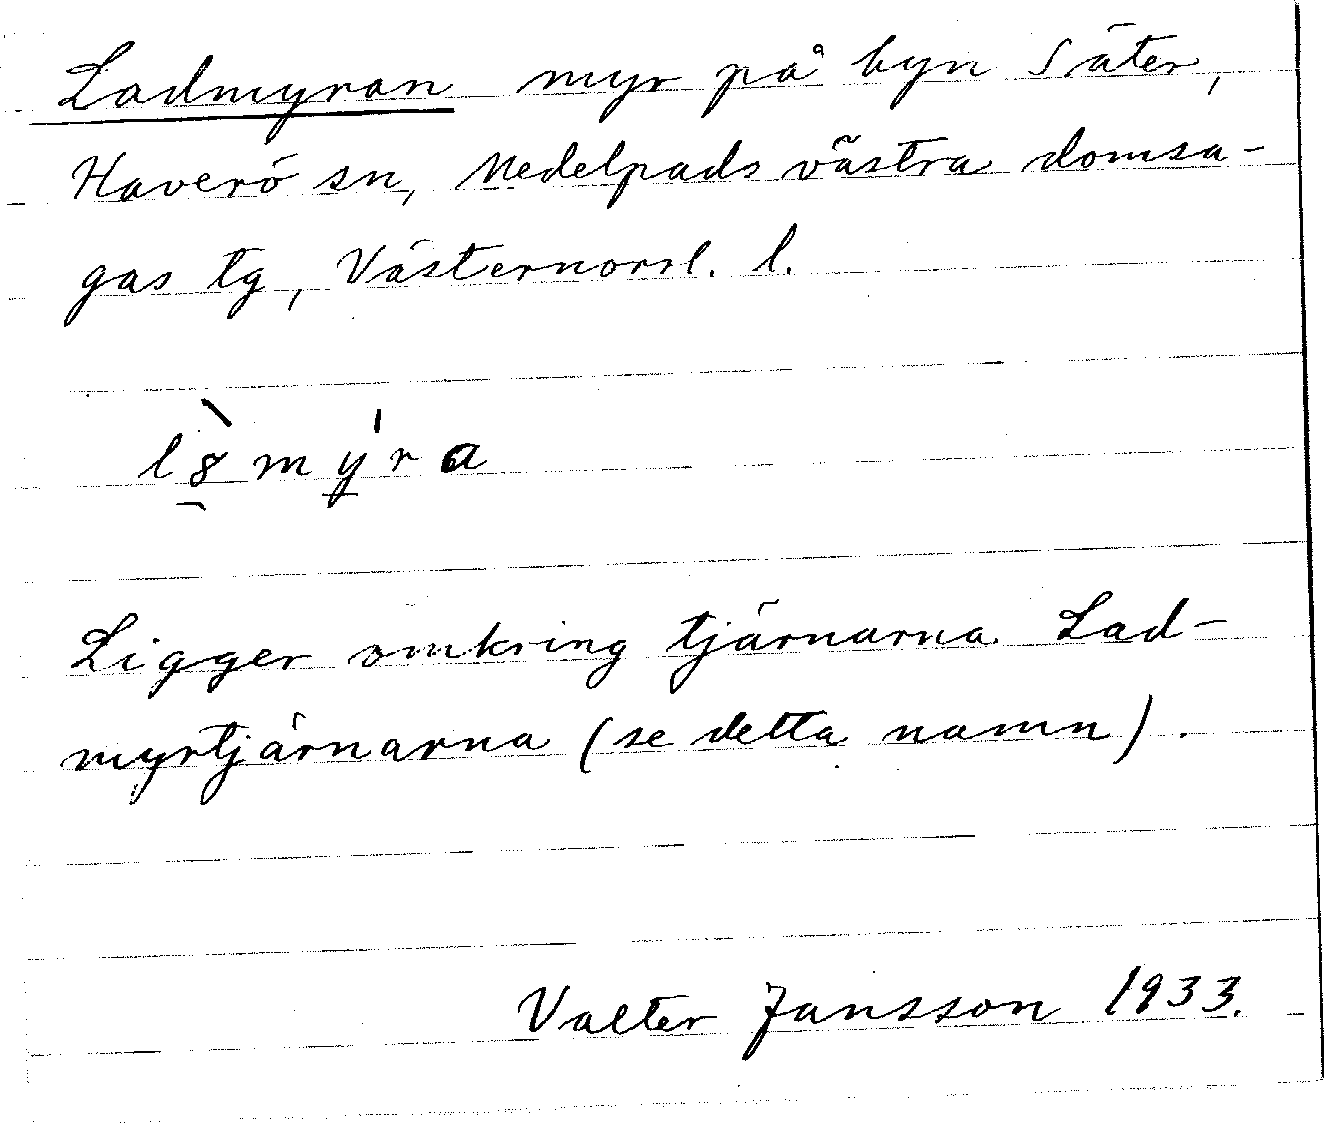 Ladmyran myr på byn Säter,
Haverö sn, Medelpads västra domsa-
gas tg, Västernorrl. l.
Ligger omkring tjärnarna Lad-
myrtjärnarna (se detta namn).
Valter Jansson 1933.